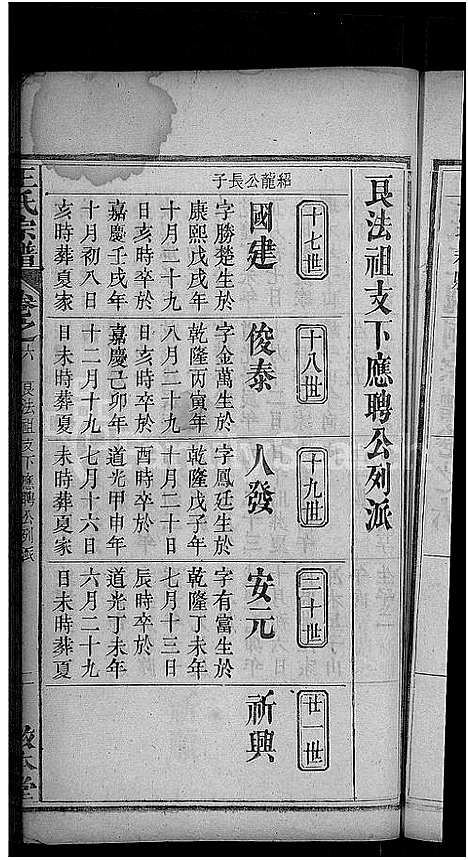 良法祖支下應聘公列派
十七世
紹龍公長子
國建
字勝楚生於
康熙戊戌年
十月二十九
日亥時卒於
嘉慶壬戌年
十月初八日
亥時葬夏家
十八世
俊泰
字金萬生於
乾隆丙寅年
八月二十九
日亥時卒於
嘉慶己卯年
十二月十九
日未時葬夏
十九世
人發
字鳳廷生於
乾隆戊子年
十月二十日
酉時卒於
道光甲申年
七月十六日
未時葬夏家
二十世
安元
字有富生於
乾隆丁未年
七月十三日
辰時卒於
道光丁未年
六月二十九
日未時葬夏
廿一世
祈興
王氏宗譜
卷之六
良法祖支下應聘公列派
一
敬本堂